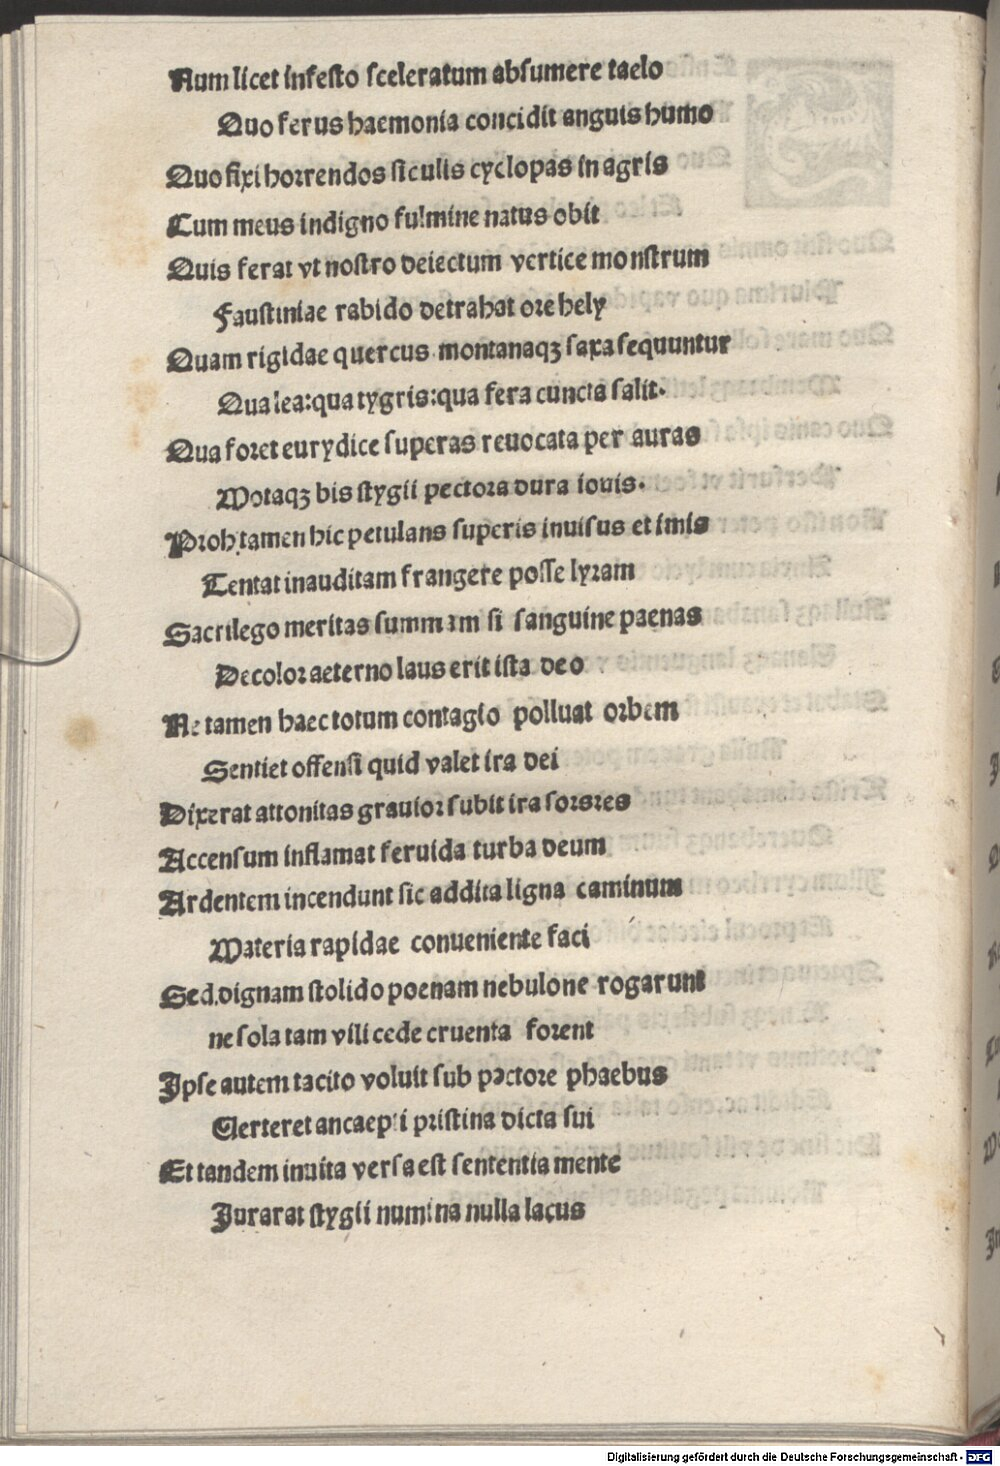 Num licet infesto sceleratum absumere taelo
Quo ferus haemonia concidit anguis humo
Quo fixi horrendos siculis cyclopas in agris
Cum meus indigno fulmine natus obit
Quis ferat vt nostro deiectum vertice monstrum
Faustiniae rabido detrahat ore hely
Quam rigidae quercus montanaqꝫ saxa sequuntur
Qua lea:qua tygris:qua fera cuncta salit.
Qua foret eurydice superas reuocata per auras
Motaqꝫ bis stygii pectora dura iouis.
Proh tamen hic petulans superis inuisus et imis
Tentat inauditam frangere posse lyram
Sacrilego meritas summam si sanguine paenas
Decolor aeterno laus erit ista deo
Ne tamen haec totum contagio polluat orbem
Sentiet offensi quid valet ira dei
Dixerat attonitas grauior subit ira sorsres
Accensum inflamat feruida turba deum
Ardentem incendunt sic addita ligna caminum
Materia rapidae conueniente faci
Sed.dignam stolido poenam nebulone rogarunt
ne sola tam vili cede cruenta forent
Ipse autem tacito voluit sub pectore phaebus
Uerteret ancaepti pristina dicta sui
Et tandem inuita versa est sententia mente
Iurarat stygii numina nulla lacus
Digitalisierung gefördert durch die Deutsche Forschungsgemeinschaft - DFG